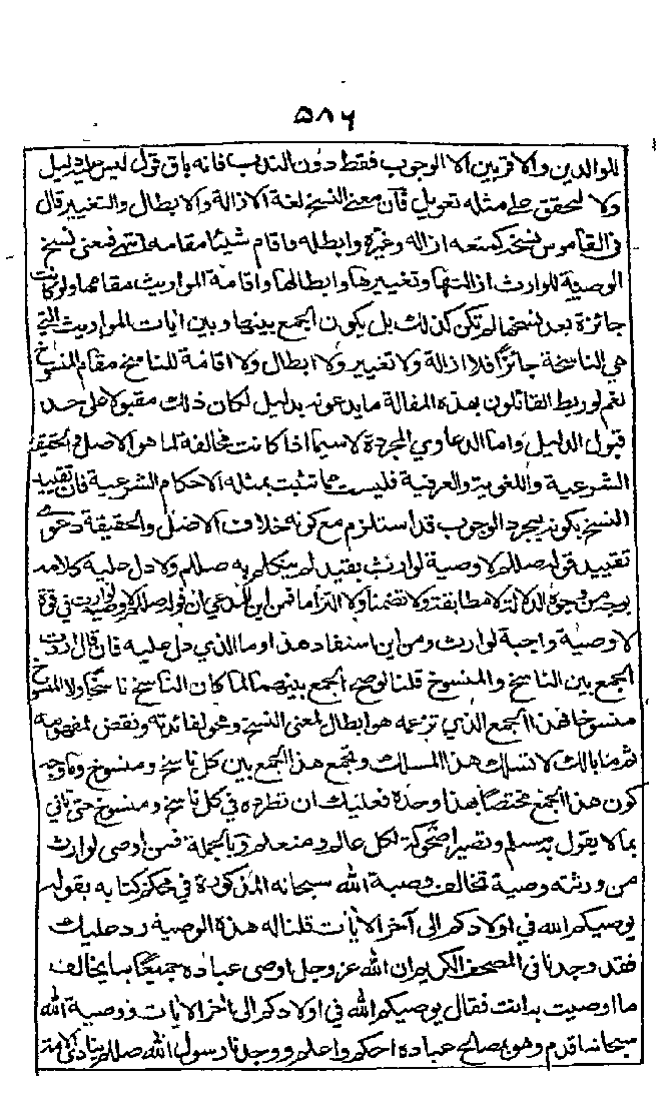 ۵۸۶
للوالدين والاقربين الا الوجوب فقط دون الندب فانه باق قول ليس عليه دليل
ولا لمحقق على مثله تعويل فان معنى النسخ لغة الازالة والابطال والتغيير قال
فى القاموس نسخه كمنعه ازاله وغيره وابطله واقام شيئا مقامه انتهى فمعنى نسخ
الوصية للوارث ازالتها وتغييرها وابطالها واقامة المواريث مقامها ولو كانت
جائزة بعد نسخها لم تكن كذلك بل يكون الجمع بينها وبين ايات المواريث التي
هي الناسخة جائزا فلا ازالة ولا تغيير ولا ابطال ولا اقامة للناسخ مقام المنسوخ
نعم لو ربط القائلون بهذه المقالة ما يدعونه بدليل لكان ذلك مقبولا على حد
قبول الدليل واما الدعاوي المجردة لاسيما اذا كانت مخالفة لما هو الاصل والحقيقة
الشرعية واللغوية والعرفية فليست مما تثبت بمثله الاحكام الشرعية فان تقييد
النسخ بكونه بمجرد الوجوب قد استلزم مع كونه خلاف الاصل والحقيقة دعوى
تقييد قوله صللم لا وصية لوارث بقيد لم يتكلم به صللم ولا دل عليه كلامه
بوجه من وجوه الدلالة لا مطابقة ولا تضمنا ولا التزاما فمن اين للمدعي ان قوله صللم لا وصية لوارث في قوة
لا وصية واجبة لوارث ومن اين استفاد هذا وما الذي دل عليه فان قال اردت
الجمع بين الناسخ والمنسوخ قلنا لو صح الجمع بينهما لما كان الناسخ ناسخا ولا المنسوخ
منسوخا فهذا الجمع الذي تزعمه هو ابطال لمعنى النسخ ومحو لفائدته ونقض لمفهومه
ثم ما بالك لا تسلك هذا المسلك وتجمع هذا الجمع بين كل ناسخ ومنسوخ وما وجه
كون هذا الجمع مختصا بهذا وحده فعليك ان تطرده في كل ناسخ ومنسوخ حتى تاتي
بما لا يقول به مسلم وتصير اضحوكة لكل عالم ومتعلم وبالجملة فمن اوصى لوارث
من ورثته وصية تخالف وصية الله سبحانه المذكورة في محكم كتابه بقوله
يوصيكم الله في اولادكم الى آخر الايات قلنا له هذه الوصية رد عليك
فقد وجدنا في المصحف الكريم ان الله عز وجل اوصى عباده جميعا بما يخالف
ما اوصيت به انت فقال يوصيكم الله في اولادكم الى اخر الايات ووصية الله
سبحانه اقدم وهو بمصالح عباده احكم واعلم ووجدنا رسول الله صللم ينادي الامة